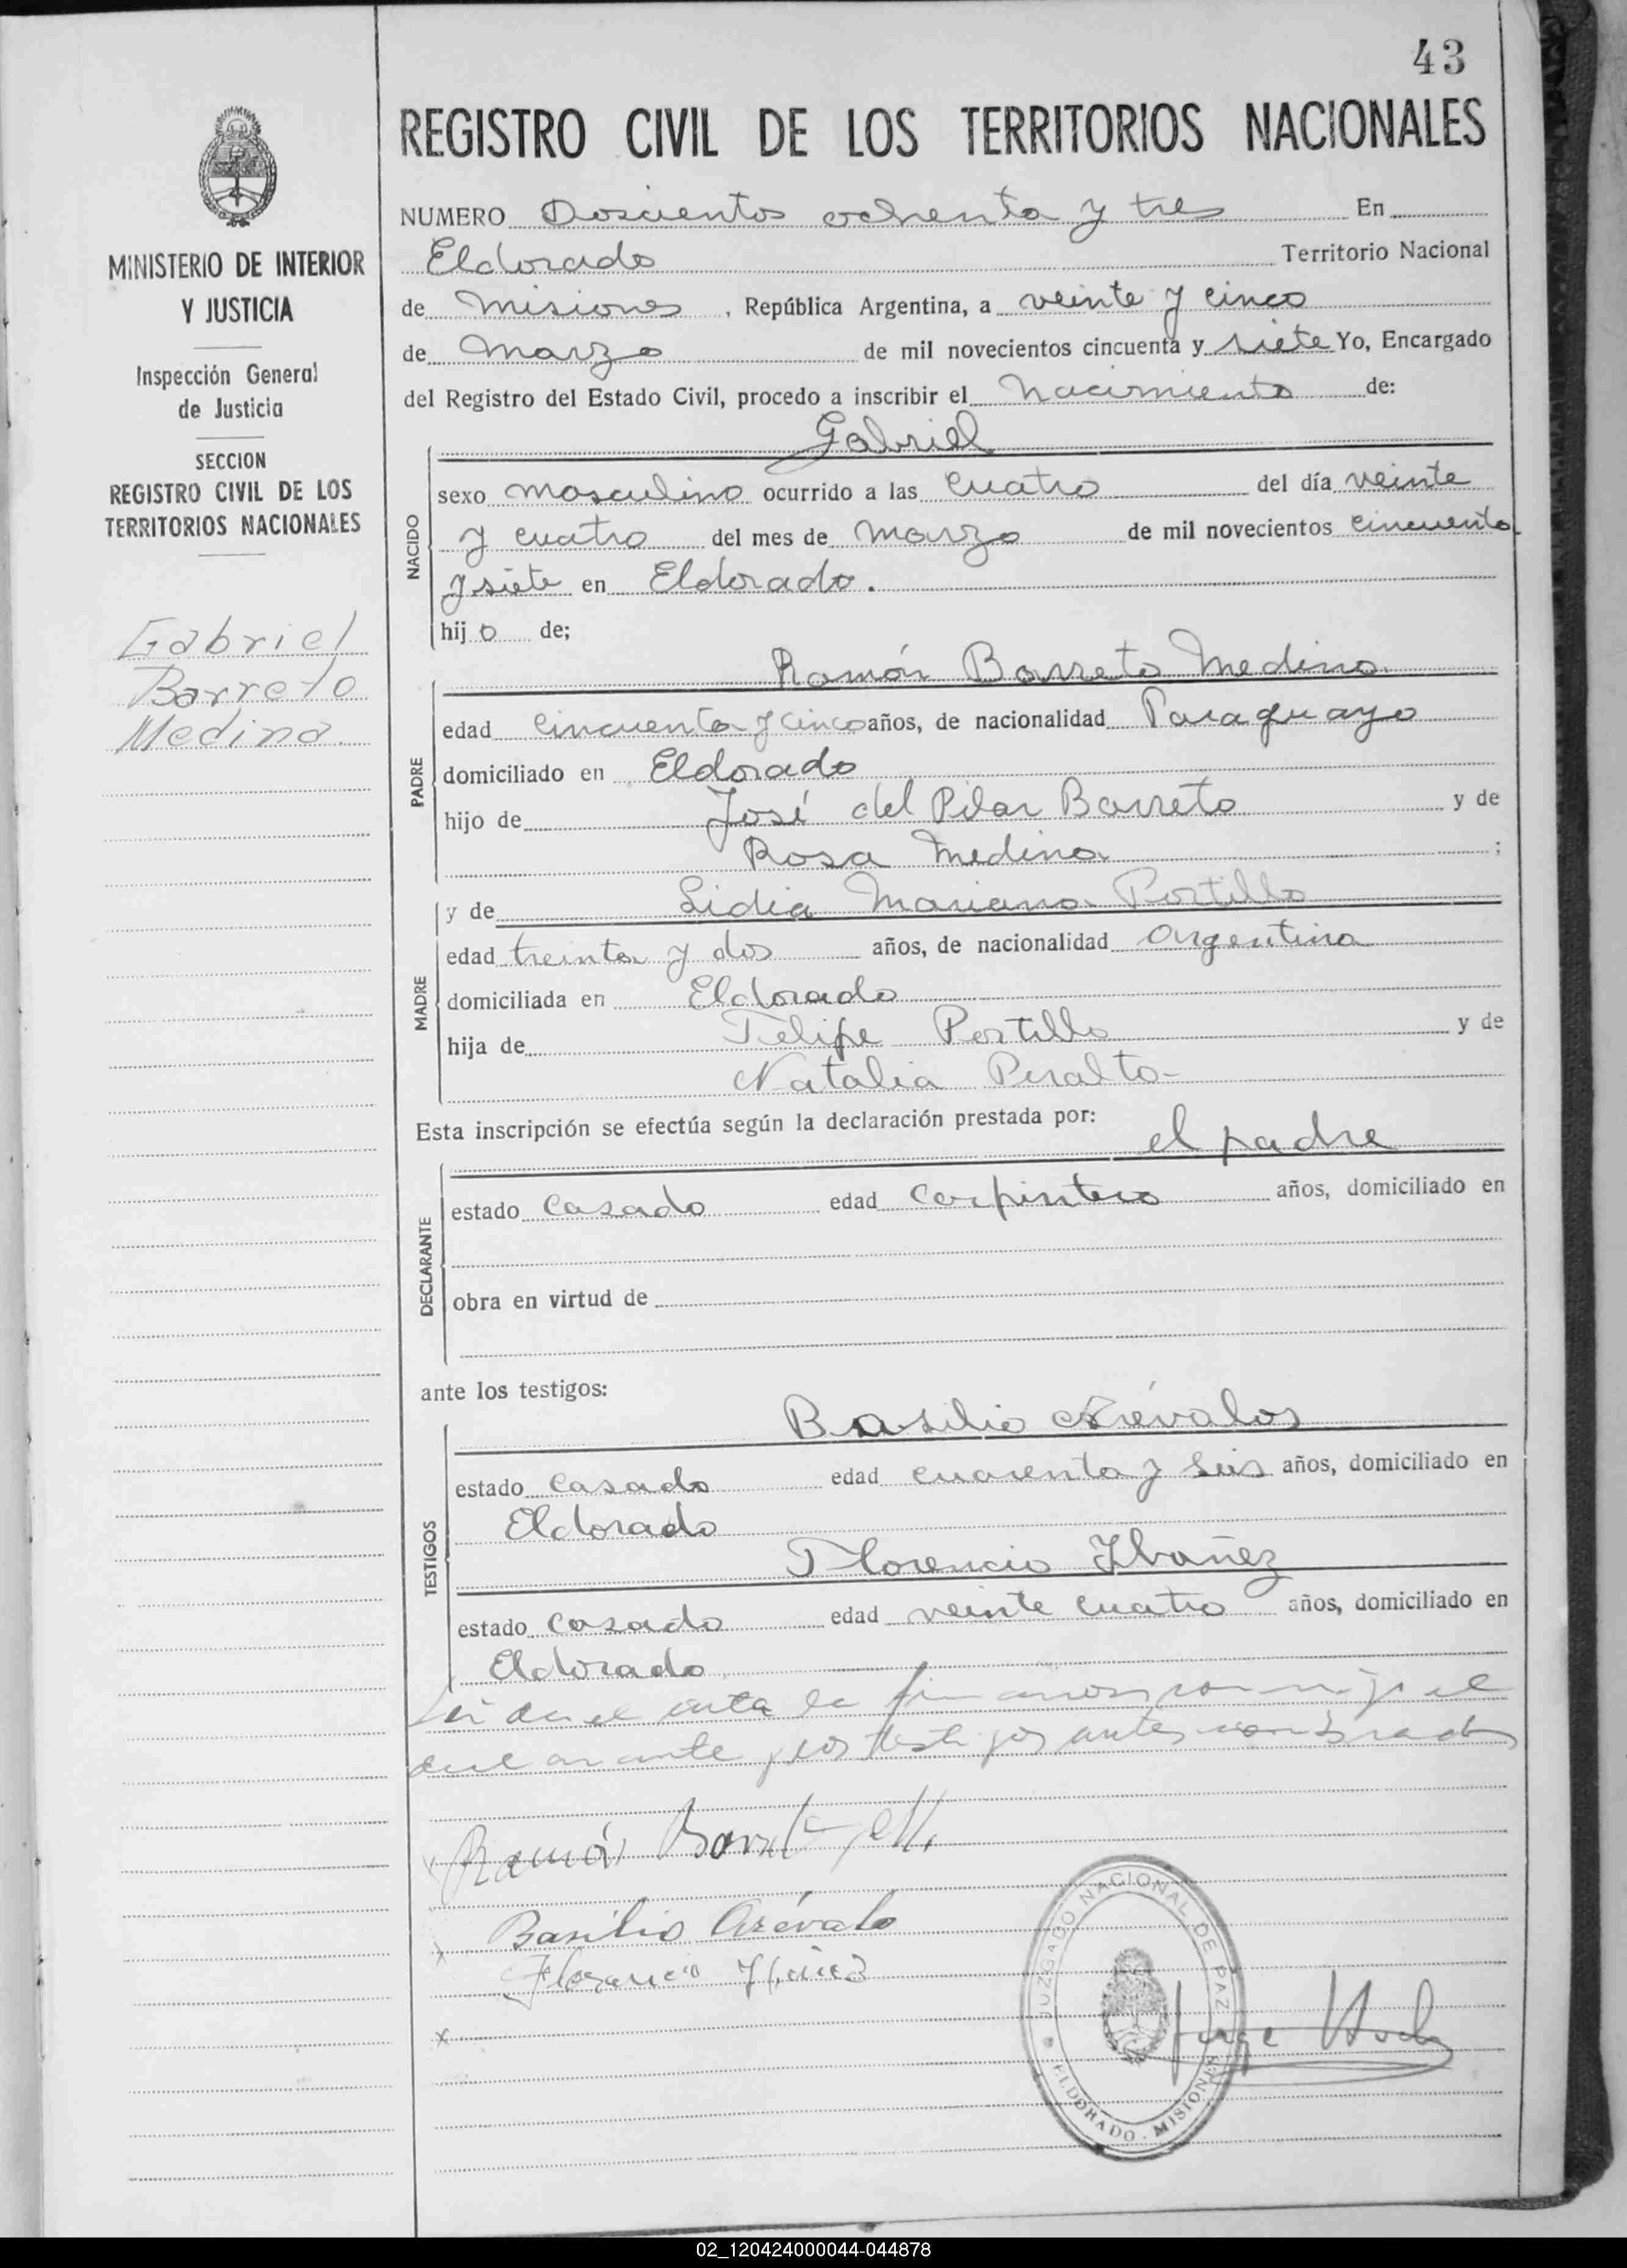 43
REGISTRO CIVIL DE LOS TERRITORIOS NACIONALES
MINISTERIO DE INTERIOR
Y JUSTICIA
Inspección General
de Justicia
SECCION
REGISTRO CIVIL DE LOS
TERRITORIOS NACIONALES
Gabriel
Barreto
Medina
NUMERO Doscientos ochenta y tres En
Eldorado Territorio Nacional
de Misiones, República Argentina, a veinte y cinco
de Marzo de mil novecientos cincuenta y siete Yo, Encargado
del Registro del Estado Civil, procedo a inscribir el nacimiento de:
NACIDO
Gabriel
sexo masculino ocurrido a las cuatro del día veinte
y cuatro del mes de Marzo de mil novecientos cincuenta
y siete en Eldorado.
hijo de;
PADRE
Ramón Barreto Medina
edad cincuenta y cinco años, de nacionalidad Paraguayo
domiciliado en Eldorado
hijo de José del Pilar Barreto y de
Rosa Medina ;
MADRE
y de Lidia Mariana Portillo
edad treinta y dos años, de nacionalidad Argentina
domiciliada en Eldorado
hija de Felipe Portillo y de
Natalia Peralta-
Esta inscripción se efectúa según la declaración prestada por:
DECLARANTE
el padre
estado casado edad carpintero años, domiciliado en
obra en virtud de
ante los testigos:
TESTIGOS
Basilio Arévalos
estado casado edad cuarenta y seis años, domiciliado en
Eldorado
Florencio Ibañez
estado casado edad veinte cuatro años, domiciliado en
Eldorado
acta la conmigo el
declarante y los testigos antes nombrados
Ramón Barreto M.
x Basilio Arévalo
Florencio
x
Jorge
JUZGADO NACIONAL DE PAZ
ELDORADO - MISIONES
02_120424000044-044878